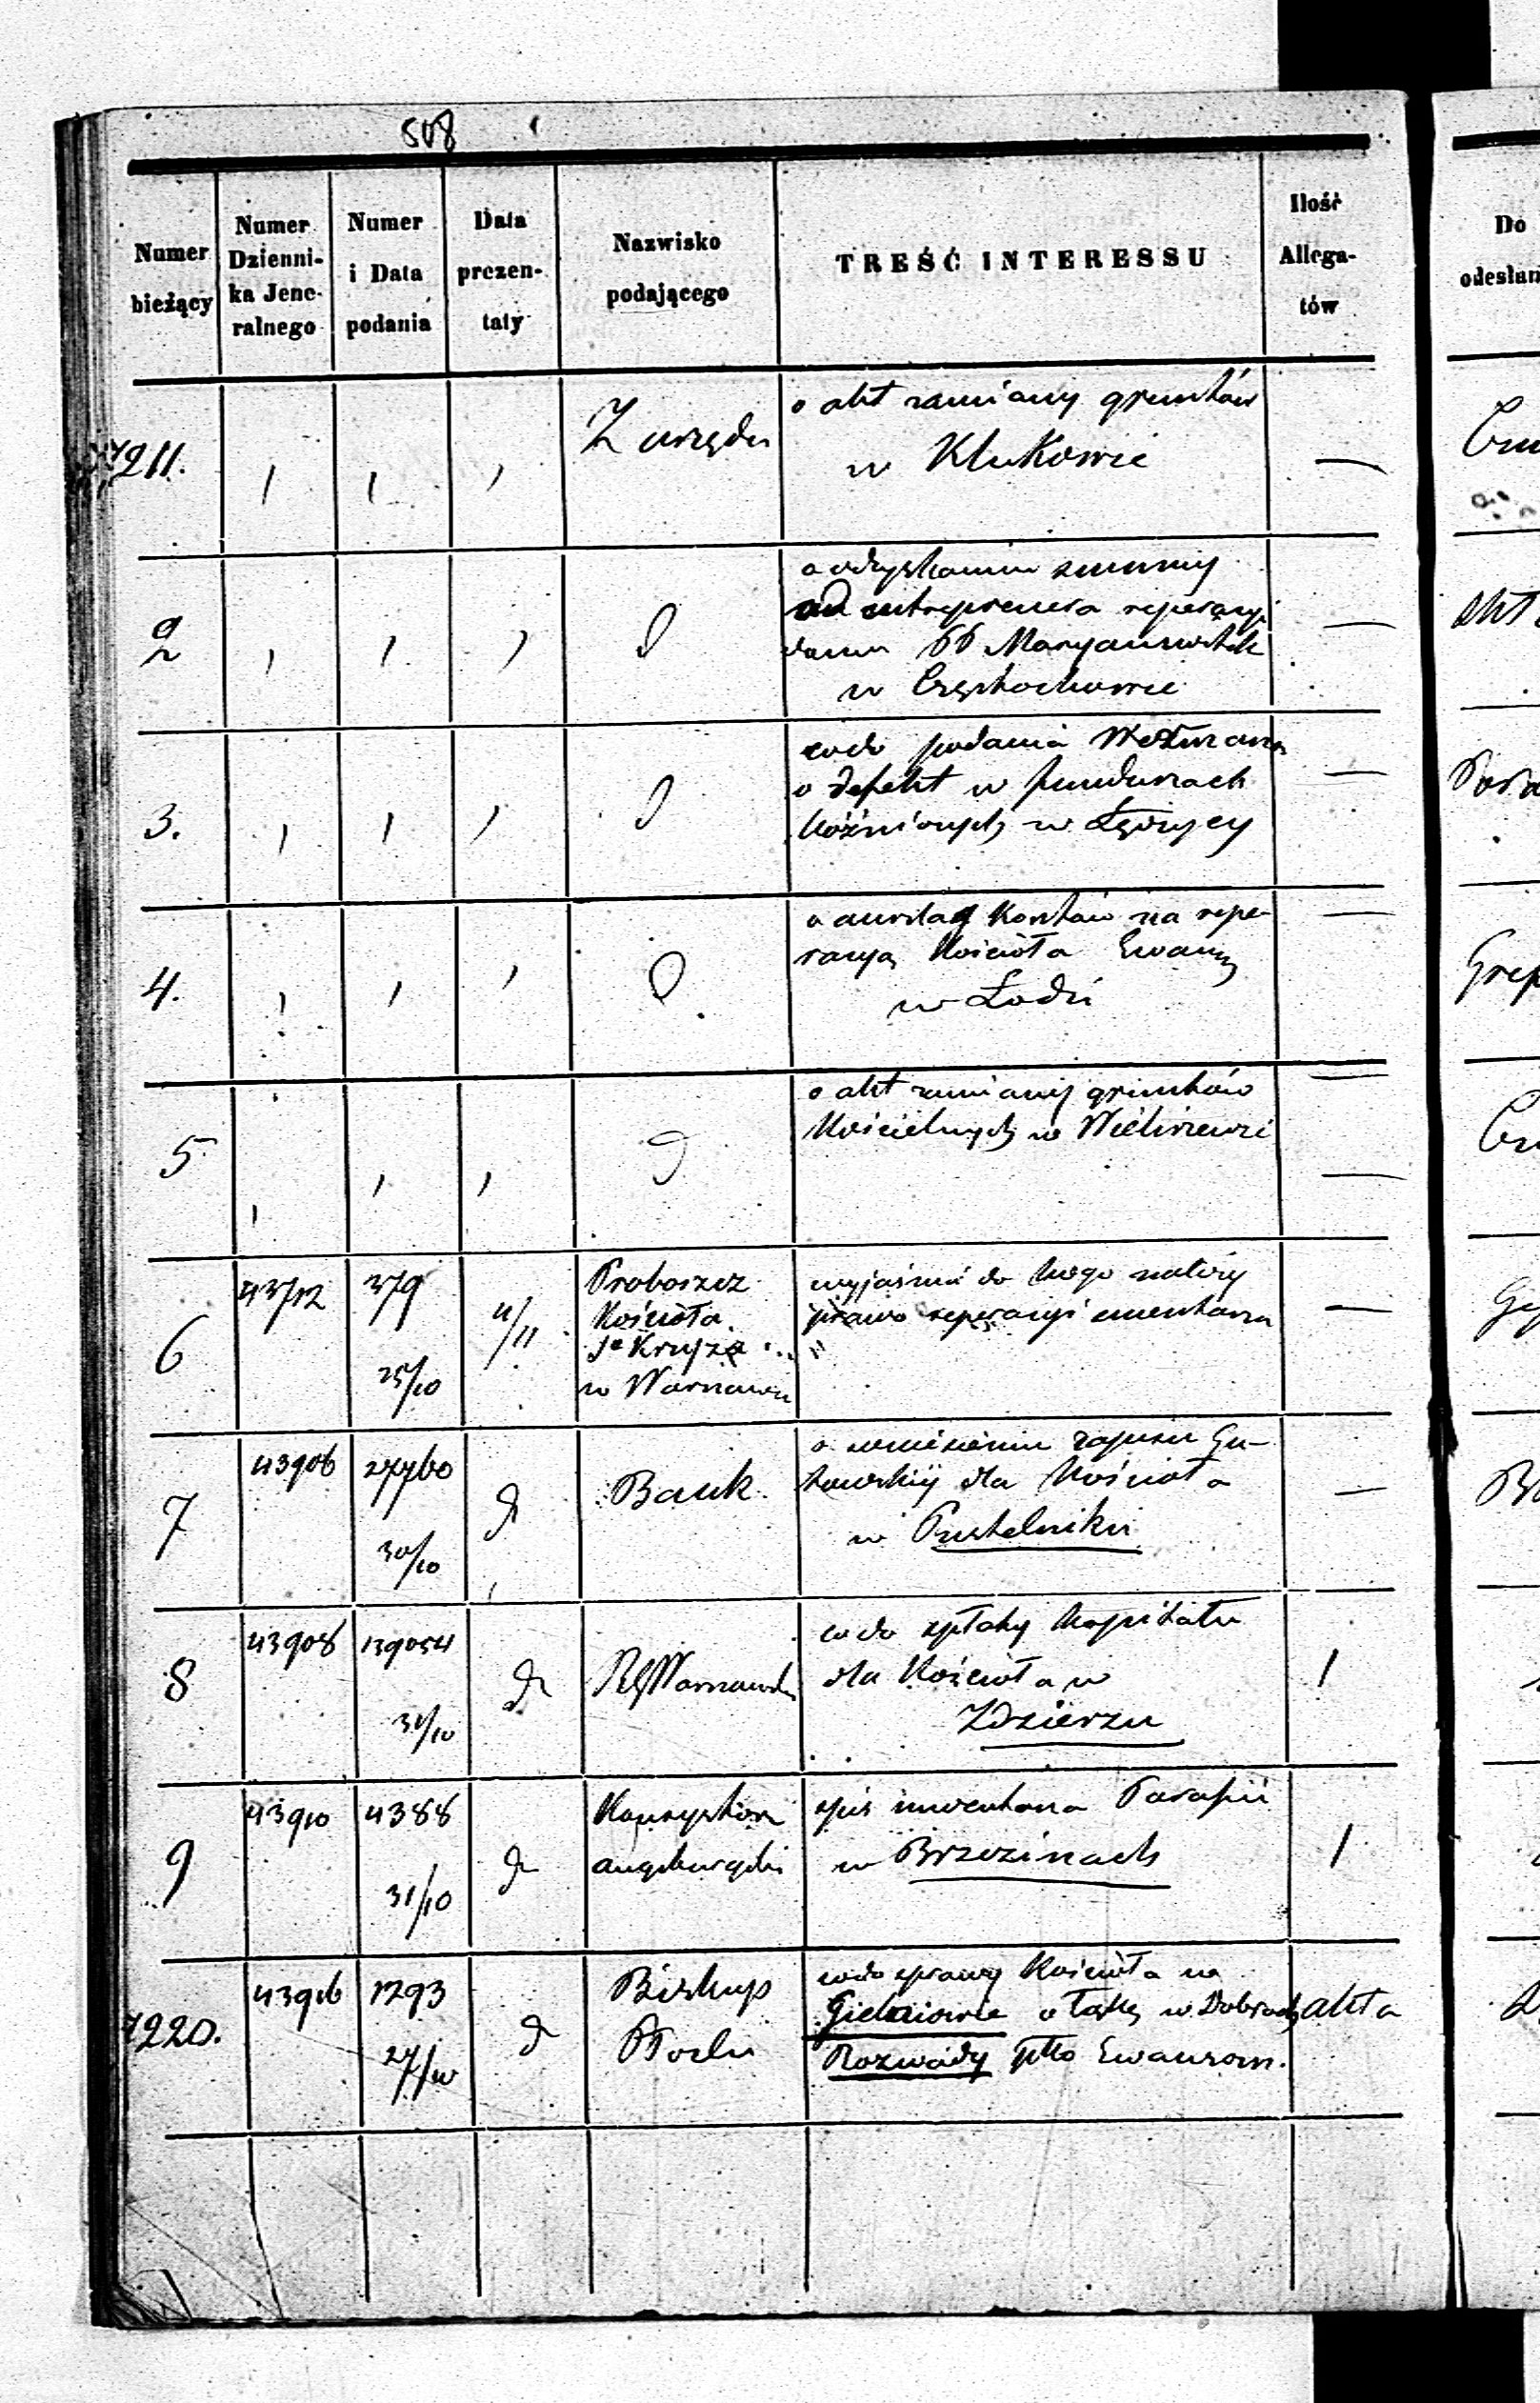 508
Numer bieżący
Numer Dzienni-ka Jene-ralnego
Numer i Data podania
Data prezen-taty
Nazwisko podającego
TREŚĆ INTERESSU
Ilość Allega-tów
Do odesłan
7211.
Z urzędu
o akt zamiany gruntów
w Klukowie
—
2
o odzyskaniu summy
od entreprenera reperacyi
domu PP Maryawitek
w Częstochowie
—
3.
co do podania
o defekt w funduszach
w Łęczycy
—
4.
o kosztów na repe-
racyą Kościoła Ewang
w Łodzi
—
5
o akt zamiany gruntów
Kościelnych w Wieliszewie
—
6
43712
379
25/10
4/11
Proboszcz
Kościoła
Sº Krzyża
w Warszawie
wyjaśnić do kogo należy
prawo reperacyi cmentarza
—
7
43906
27760
30/10
d
Bank
o
dla Kościoła
w Pustelniku
—
8
43908
139054
31/10
do
RG Warszawski
co do spłaty Kapitału
dla Kościoła w
Zdzierzu
1
9
43910
4388
31/10
do
Konsystorz
augsburgski
spis inwentarza Parafii
w Brzezinach
1
7220.
43916
1293
27/10
do
Biskup
Płocki
co do sprawy Kościoła w
Gielniowie o łąkę w Dobrach
Rozwady
akta